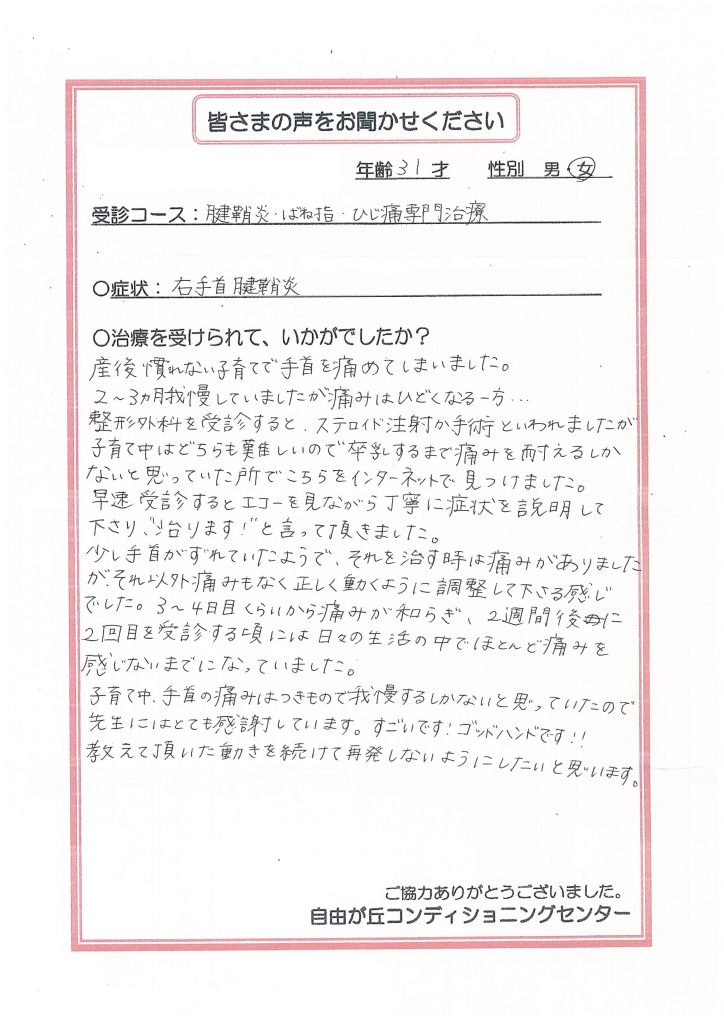 皆さまの声をお聞かせください
年齢 31 才 性別 男・女
受診コース：腱鞘炎・ばね指・ひじ痛専門治療
○症状：右手首腱鞘炎
○治療を受けられて、いかがでしたか？
産後慣れない子育てで手首を痛めてしまいました。
2～3ヵ月我慢していましたが痛みはひどくなる一方…
整形外科を受診すると、ステロイド注射か手術といわれましたが
子育て中はどちらも難しいので卒乳するまで痛みを耐えるしか
ないと思っていた所でこちらをインターネットで見つけました。
早速受診するとエコーを見ながら丁寧に症状を説明して
下さり、"治ります！"と言って頂きました。
少し手首がずれていたようで、それを治す時は痛みがありました
が、それ以外痛みもなく正しく動くように調整して下さる感じ
でした。3～4日目くらいから痛みが和らぎ、2週間後に
2回目を受診する頃には日々の生活の中でほとんど痛みを
感じないまでになっていました。
子育て中、手首の痛みはつきもので我慢するしかないと思っていたので
先生にはとても感謝しています。すごいです！ゴッドハンドです！！
教えて頂いた動きを続けて再発しないようにしたいと思います。
ご協力ありがとうございました。
自由が丘コンディショニングセンター